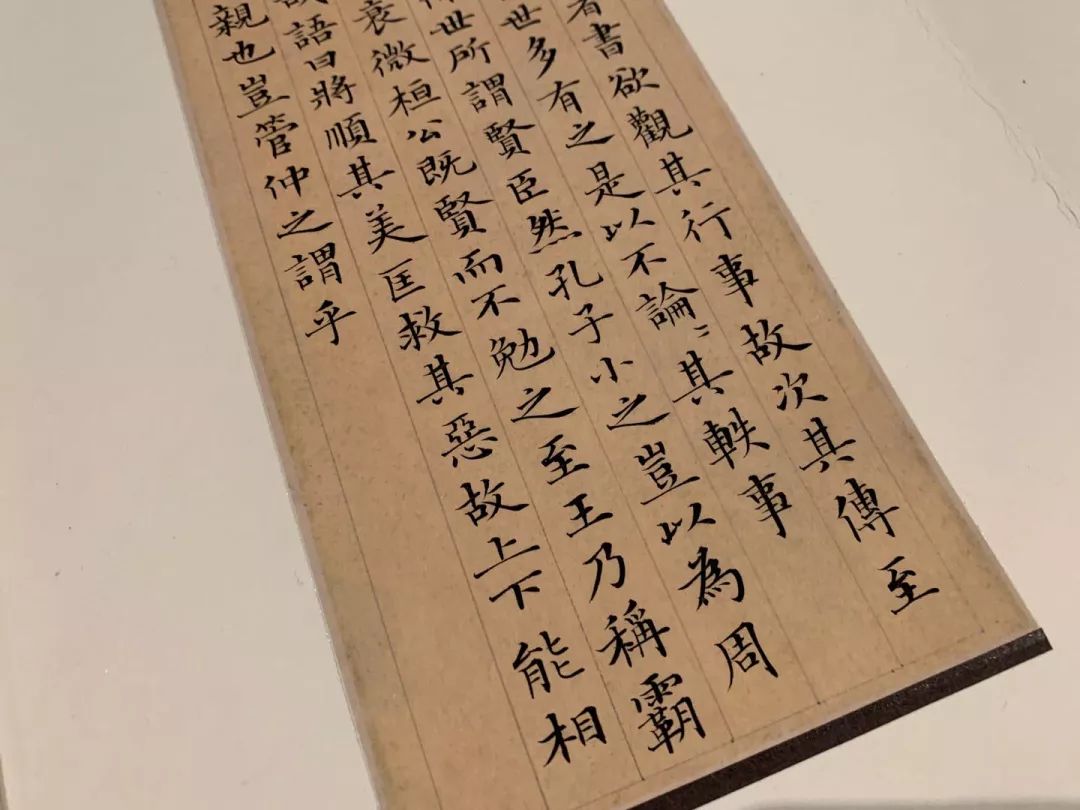 書欲觀其行事故次其傳至
世多有之是以不論〻其軼事
世所謂賢臣然孔子小之豈以為周
衰微桓公既賢而不勉之至王乃稱霸
哉語曰將順其美匡救其惡故上下能相
親也豈管仲之謂乎